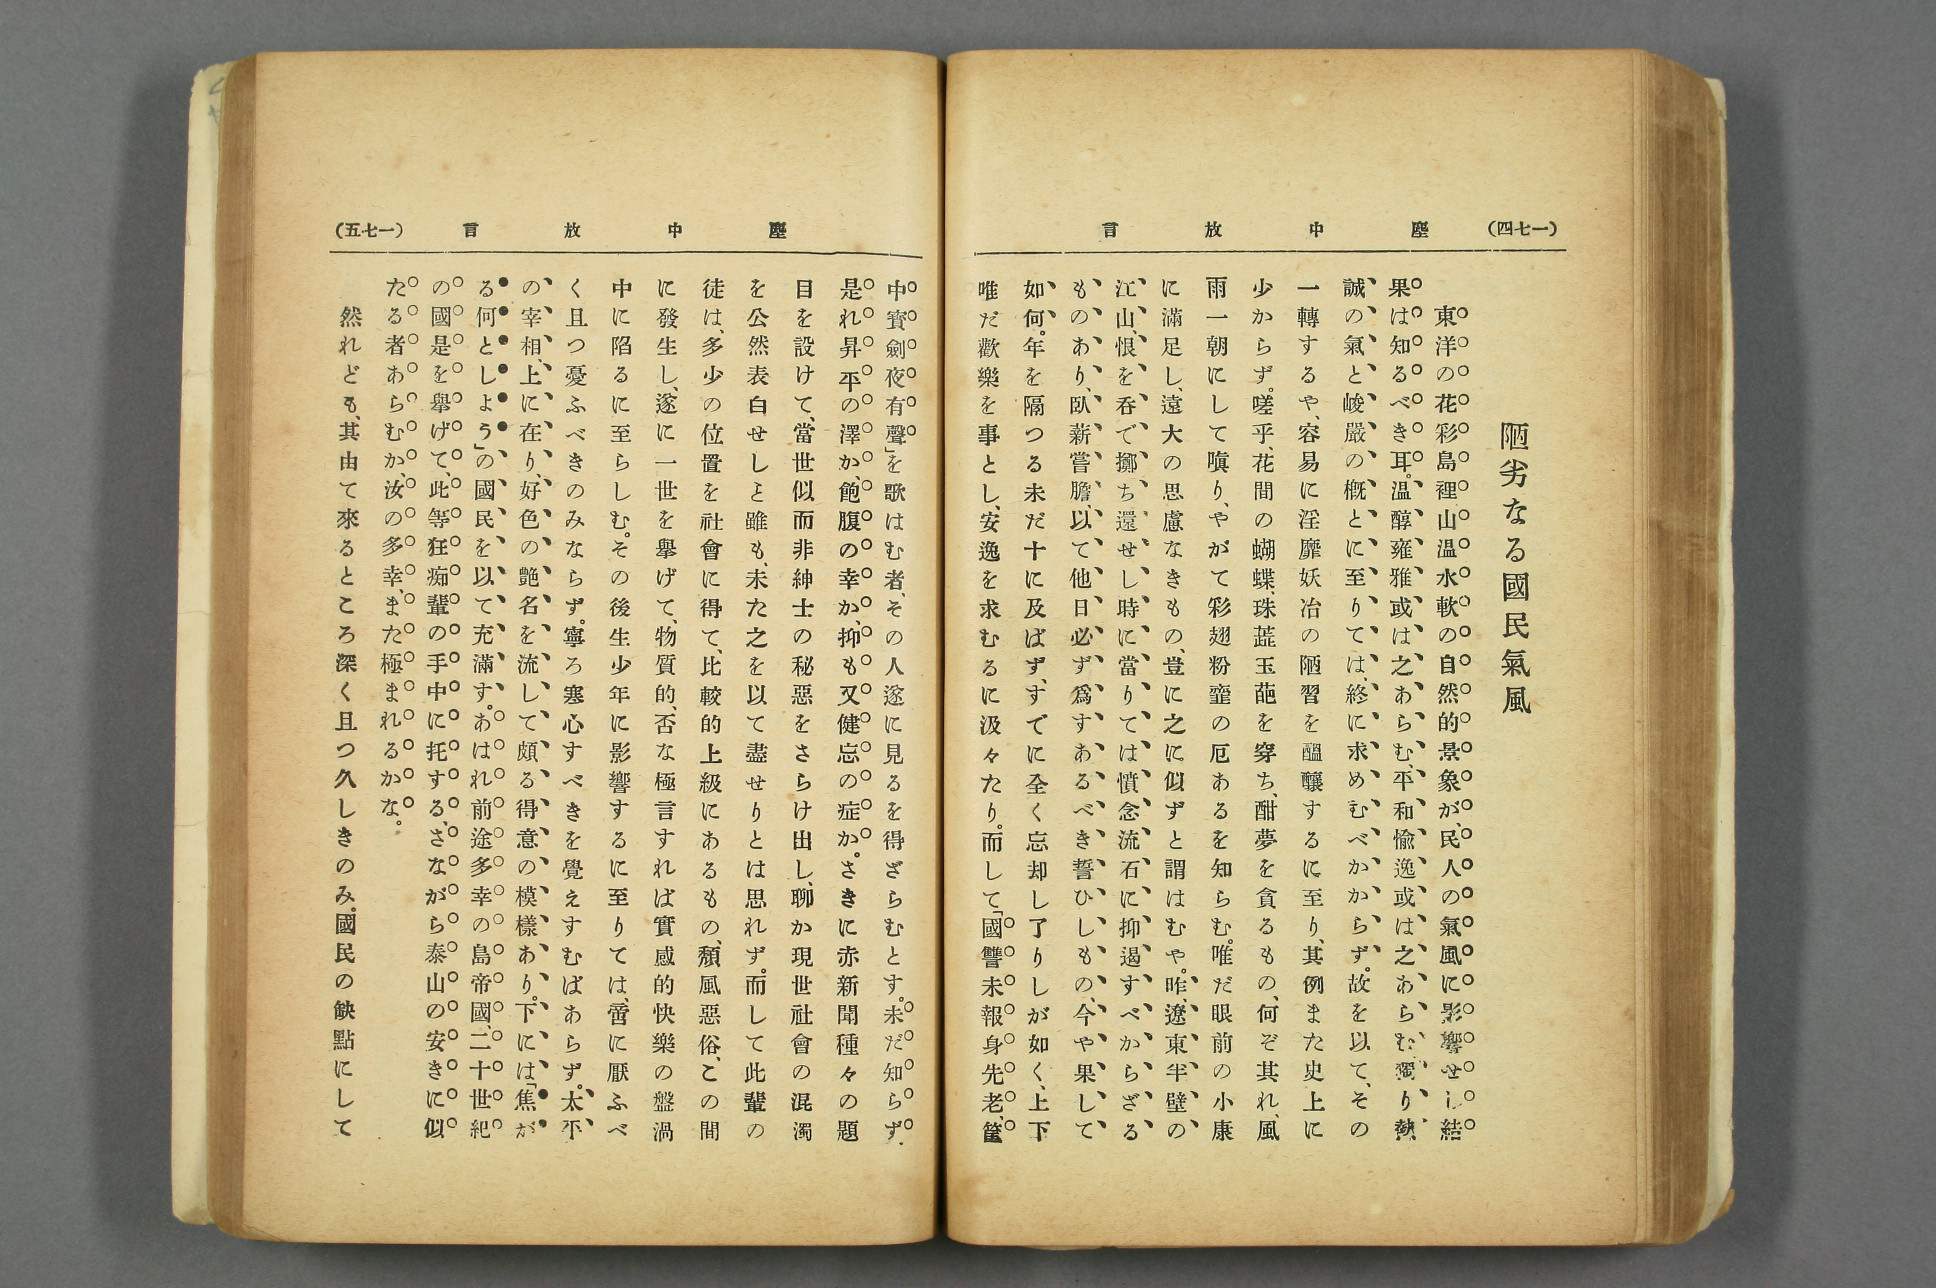 (一七四) 塵中放言
陋劣なる國民氣風
東洋の花彩島裡、山温水軟の自然的景象が、民人の氣風に影響せし結
果は知るべき耳。温醇雍雅或は之あらむ、平和愉逸或は之あらむ、獨り熱
誠の氣と峻嚴の概とに至りては、終に求めむべかからず。故を以て、その
一轉するや、容易に淫靡妖冶の陋習を醞釀するに至り、其例また史上に
少からず。嗟乎花間の蝴蝶、珠蕋玉葩を穿ち、酣夢を貪るもの、何ぞ其れ、風
雨一朝にして嗔り、やがて彩翅粉虀の厄あるを知らむ。唯だ眼前の小康
に滿足し、遠大の思慮なきもの、豈に之に似ずと謂はむや。昨、遼東半壁の
江山、恨を呑で擲ち還せし時に當りては、憤念流石に抑遏すべからざる
ものあり、臥薪嘗膽、以て他日必ず爲すあるべき誓ひしもの、今や果して
如何。年を隔つる未だ十に及ばず、すでに全く忘却し了りしが如く、上下
唯だ歡樂を事とし、安逸を求むるに汲々たり。而して「國讐未報身先老、篋
(一七五) 塵中放言
中寶劍夜有聲」を歌はむ者、その人遂に見るを得ざらむとす。未だ知らず、
是れ昇平の澤か、飽腹の幸か、抑も又健忘の症か。さきに赤新聞種々の題
目を設けて、當世似而非紳士の秘惡をさらけ出し、聊か現世社會の混濁
を公然表白せしと雖も、未た之を以て盡せりとは思れず。而して此輩の
徒は、多少の位置を社會に得て、比較的上級にあるもの、頽風惡俗、この間
に發生し、遂に一世を擧げて、物質的、否な極言すれば實感的快樂の盤渦
中に陷るに至らしむ。その後生少年に影響するに至りては、啻に厭ふべ
く且つ憂ふべきのみならず。寧ろ寒心すべきを覺えすむばあらず。太平
の宰相、上に在り、好色の艶名を流して頗る得意の模樣あり。下には「焦が
る何としよう」の國民を以て充滿す。あはれ前途多幸の島帝國、二十世紀
の國是を擧げて、此等狂痴輩の手中に托する、さながら泰山の安きに似
たる者あらむか、汝の多幸、また極まれるかな。
然れども、其由て來るところ深く且つ久しきのみ。國民の缺點にして